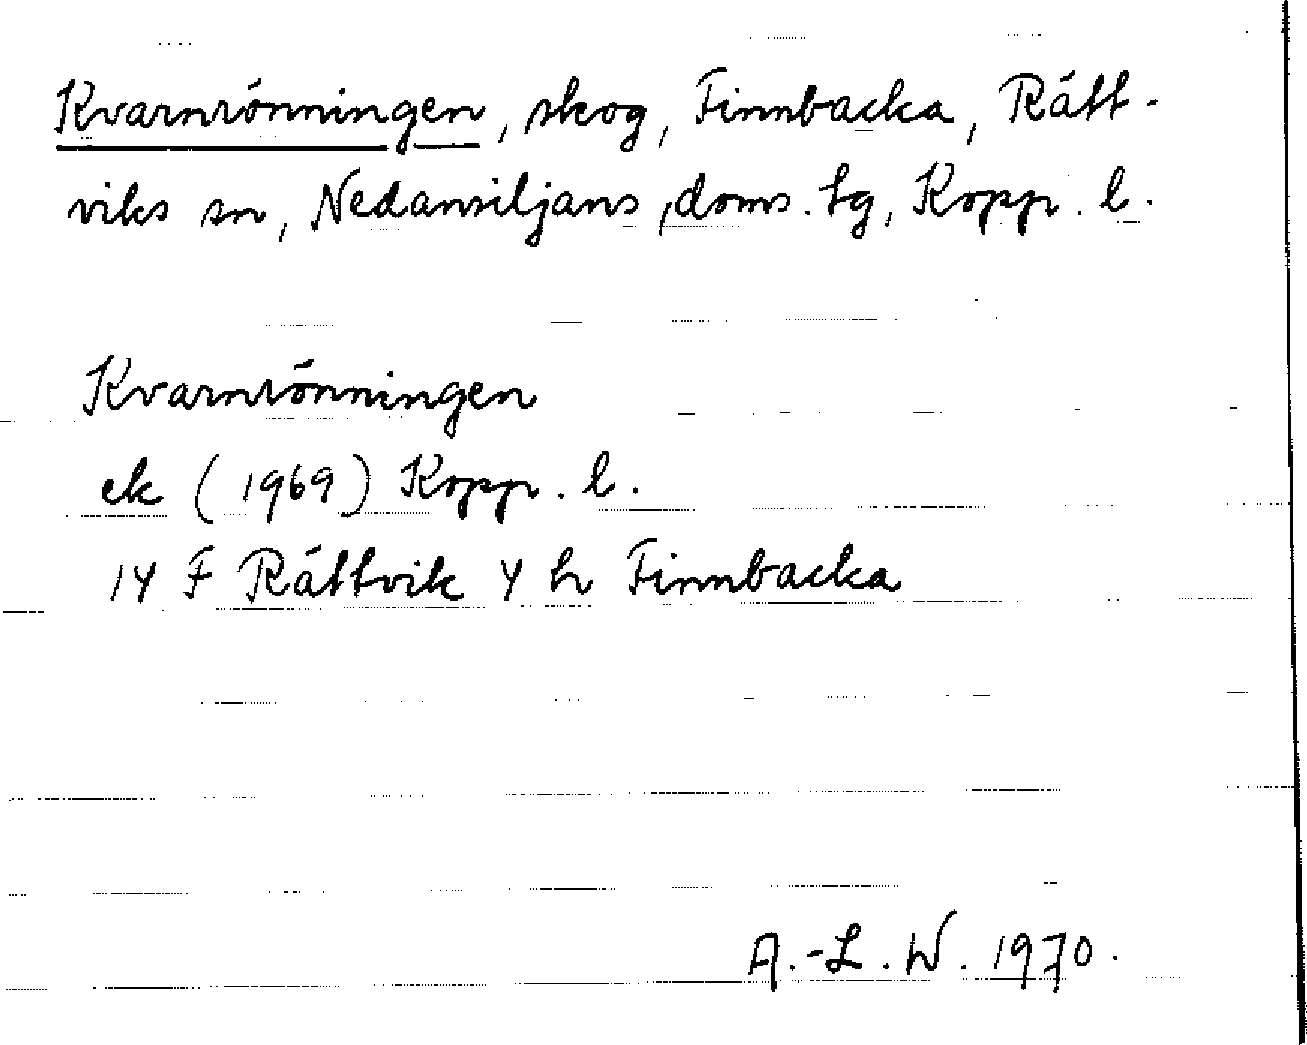 Kvarnrönningen, skog, Finnbacka, Rätt-
viks sn, Nedansiljans doms. tg, Kopp. l.
Kvarnrönningen
ek (1969) Kopp. l.
14 F Rättvik 4 h Finnbacka
A.-L. W. 1970.